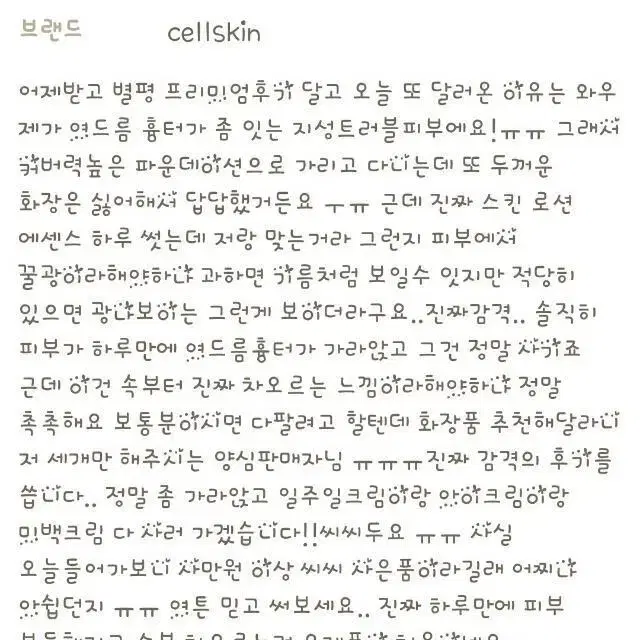 브랜드 cellskin
어제받고 별평 프리미엄후기 달고 오늘 또 달러온 이유는 와우
제가 여드름 흉터가 좀 잇는 지성트러블피부에요!ㅠㅠ 그래서
커버력높은 파운데이션으로 가리고 다니는데 또 두꺼운
화장은 싫어해서 답답했거든요 ㅜㅠ 근데 진짜 스킨 로션
에센스 하루 썻는데 저랑 맞는거라 그런지 피부에서
꿀광이라해야하나 과하면 기름처럼 보일수 잇지만 적당히
있으면 광나보이는 그런게 보이더라구요..진짜감격.. 솔직히
피부가 하루만에 여드름흉터가 가라앉고 그건 정말 사기죠
근데 이건 속부터 진짜 차오르는 느낌이라해야하나 정말
촉촉해요 보통분이시면 다팔려고 할텐데 화장품 추천해달라니
저 세개만 해주시는 양심판매자님 ㅠㅠㅠ진짜 감격의 후기를
씁니다.. 정말 좀 가라앉고 일주일크림이랑 아이크림이랑
미백크림 다 사러 가겠습니다!!씨씨두요 ㅠㅠ 사실
오늘들어가보니 사만원 이상 씨씨 사은품이라길래 어찌나
아쉽던지 ㅠㅠ 여튼 믿고 써보세요.. 진짜 하루만에 피부